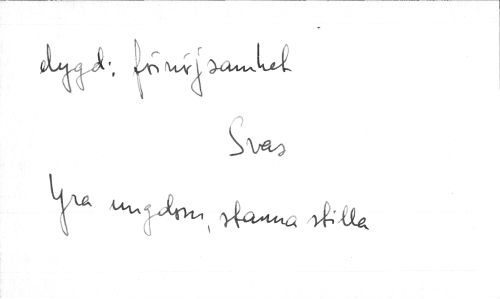 dygd: förnöjsamhet
Svas
Yra ungdom, stanna stilla